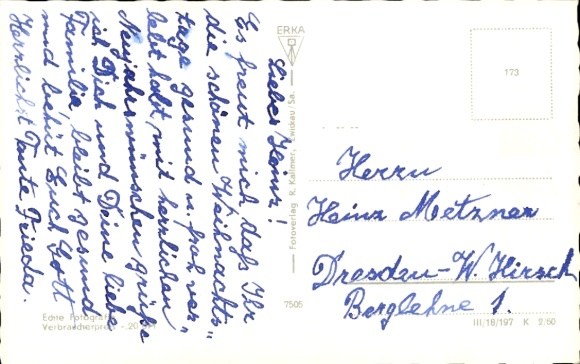 Lieber Heinz!
Es freut mich daß Ihr
die schönen Weihnachts=
tage gesund u. froh ver=
lebt habt, mit herzlichen
Neujahrswünschen grüße
ich Dich und Deine liebe
Familie, bleibt gesund
und behüt Euch Gott
Herzlichst Tante Frieda.
ERKA
Fotoverlag R. Kallmer, Zwickau/Sa.
7505
Echte Fotografie
Verbraucherpreis -.20
173
Herrn
Heinz Metzner
Dresden-W. Hirsch
Berglehne 1.
III/18/197 K 2/50